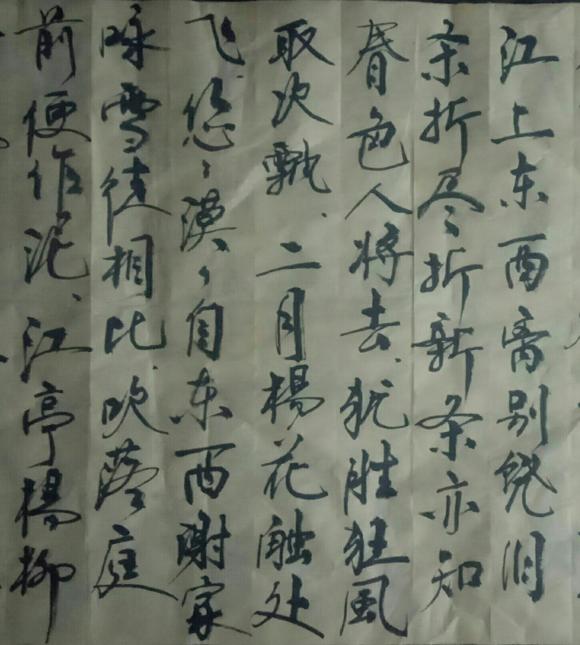 江上东西离别饶旧
条折尽折新条亦知
春色人将去犹胜狂風
取次飘、二月楊花触处
飞悠々漠々自东西谢家
咏雪徒相比吹落庭
前便作泥、江亭楊柳